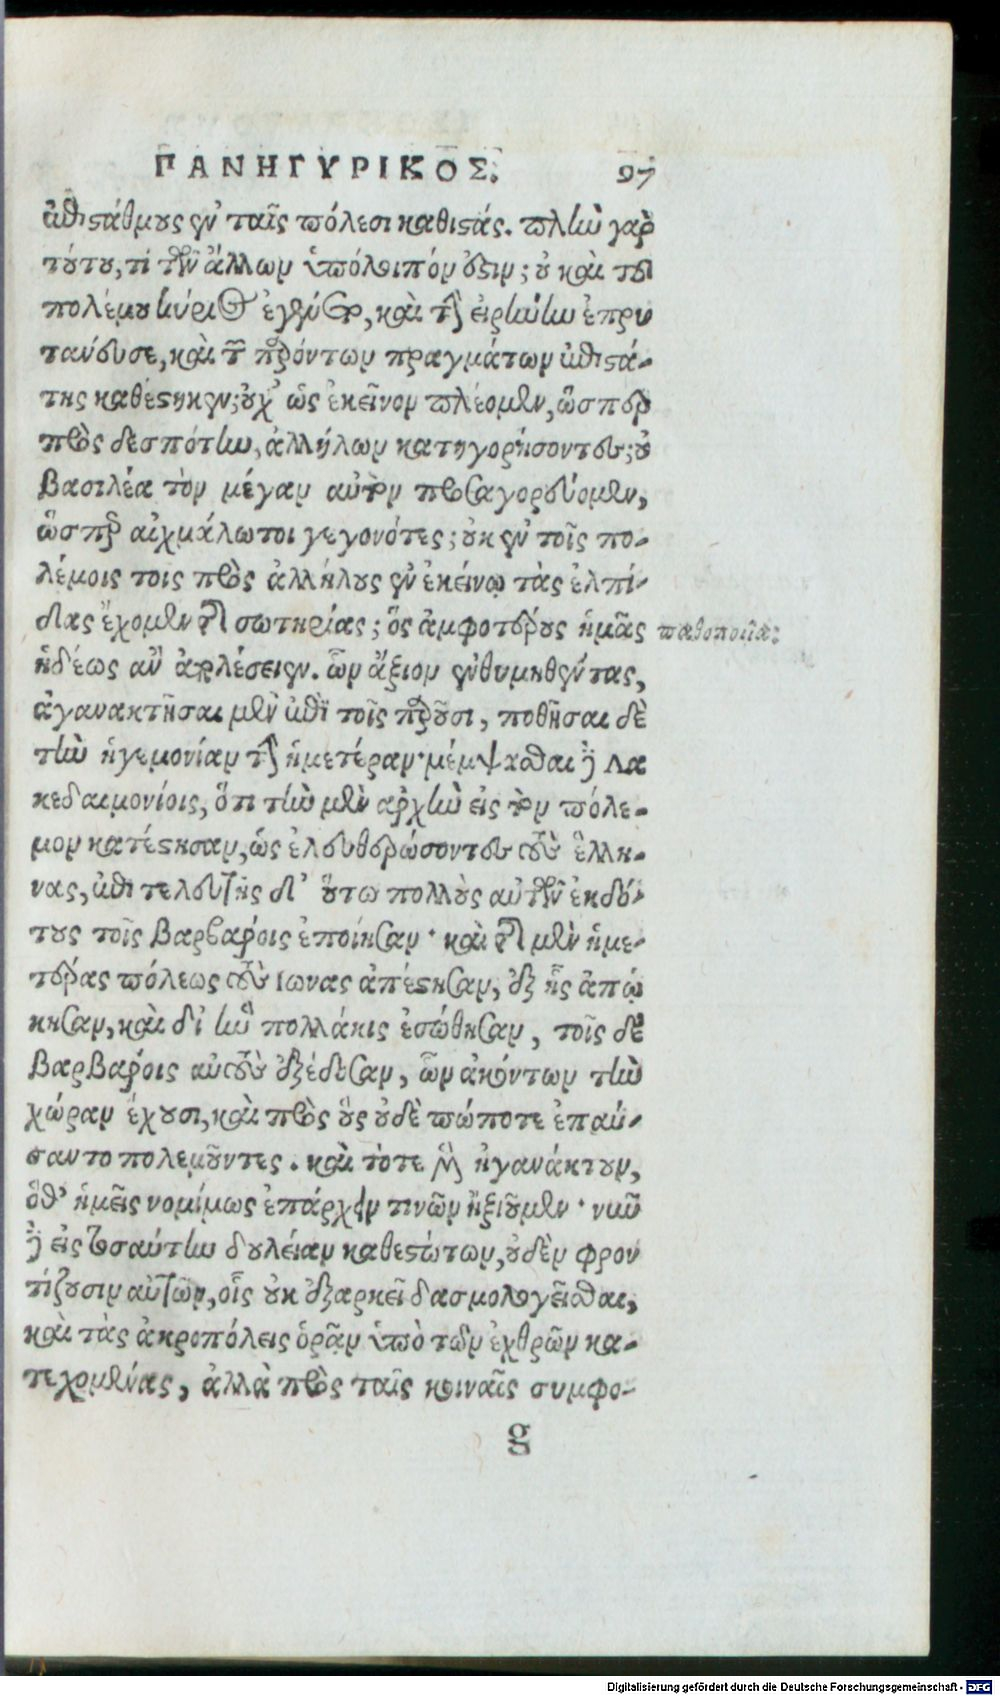 ΠΑΝΗΓΥΡΙΚΟΣ. 97
ἐπιστάθμους ἐν ταῖς πόλεσι καθιστάς. πλὴν γὰρ
τούτου, τί τῶν ἄλλων ὑπόλοιπόν ἐστιν; οὐ καὶ τοῦ
πολέμου κύριος ἐγένετο, καὶ τὴν εἰρήνην ἐπρυ
τάνευσε, καὶ τῶν παρόντων πραγμάτων ἐπιστά-
της καθέστηκεν; οὐχ ὡς ἐκεῖνον πλέομεν, ὥσπερ
πρὸς δεσπότην, ἀλλήλων κατηγορήσοντες; οὐ
βασιλέα τὸν μέγαν αὐτὸν προσαγορεύομεν,
ὥσπερ αἰχμάλωτοι γεγονότες; οὐκ ἐν τοῖς πο-
λέμοις τοις πρὸς ἀλλήλους ἐν ἐκείνῳ τὰς ἐλπί-
δας ἔχομεν τῆς σωτηρίας; ὃς ἀμφοτέρους ἡμᾶς
παθοποιΐα:
ἡδέως ἂν ἀπολέσειεν. ὧν ἄξιον ἐνθυμηθέντας,
ἀγανακτῆσαι μὲν ἐπὶ τοῖς παροῦσι, ποθῆσαι δὲ
τὴν ἡγεμονίαν τὴν ἡμετέραν· μέμψασθαι δὲ Λα
κεδαιμονίοις, ὅτι τὴν μὲν ἀρχὴν εἰς τὸν πόλε-
μον κατέστησαν, ὡς ἐλευθερώσοντες τοὺς ἕλλη-
νας, ἐπὶ τελευτῆς δ' οὕτω πολλοὺς αὐτῶν ἐκδό-
τους τοῖς βαρβάροις ἐποίησαν· καὶ τῆς μὲν ἡμε-
τέρας πόλεως τοὺς Ιωνας ἀπέστησαν, ἐξ ἧς ἀπῴ
κησαν, καὶ δι' ἣν πολλάκις ἐσώθησαν, τοῖς δὲ
βαρβάροις αὐτοὺς ἐξέδοσαν, ὧν ἀκόντων τὴν
χώραν ἔχουσι, καὶ πρὸς οὓς οὐδὲ πώποτε ἐπαύ-
σαντο πολεμοῦντες. καὶ τότε μὲν ἠγανάκτουν,
ὅθ' ἡμεῖς νομίμως ἐπάρχειν τινῶν ἠξιοῦμεν· νῦν
δὲ εἰς τοσαύτην δουλείαν καθεστώτων, οὐδὲν φρον
τίζουσιν αὐτῶν, οἷς οὐκ ἐξαρκεῖ δασμολογεῖσθαι,
καὶ τὰς ἀκροπόλεις ὁρᾶν ὑπὸ τῶν ἐχθρῶν κα-
τεχομένας, ἀλλὰ πρὸς ταῖς κοιναῖς συμφο-
g
Digitalisierung gefördert durch die Deutsche Forschungsgemeinschaft - DFG